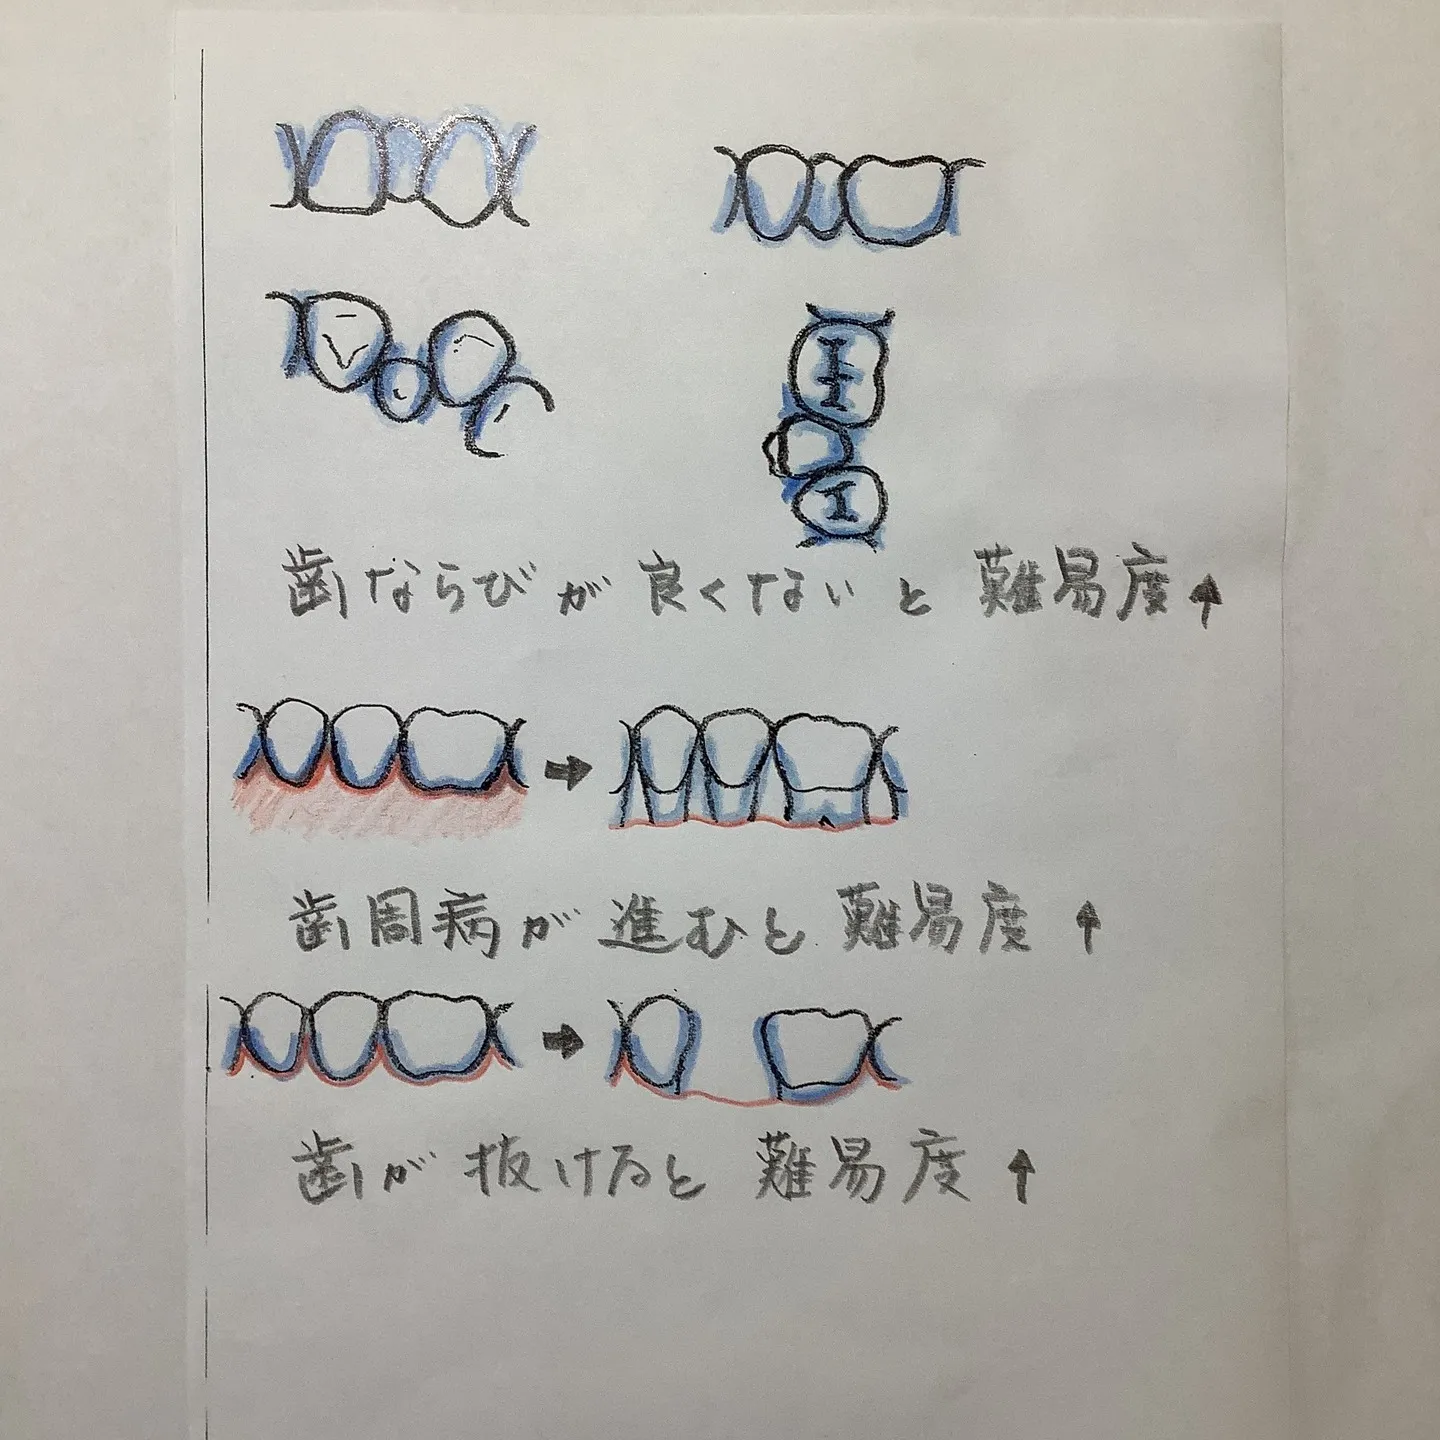 歯ならびが良くないと難易度↑
歯周病が進むと難易度↑
歯が抜けると難易度↑